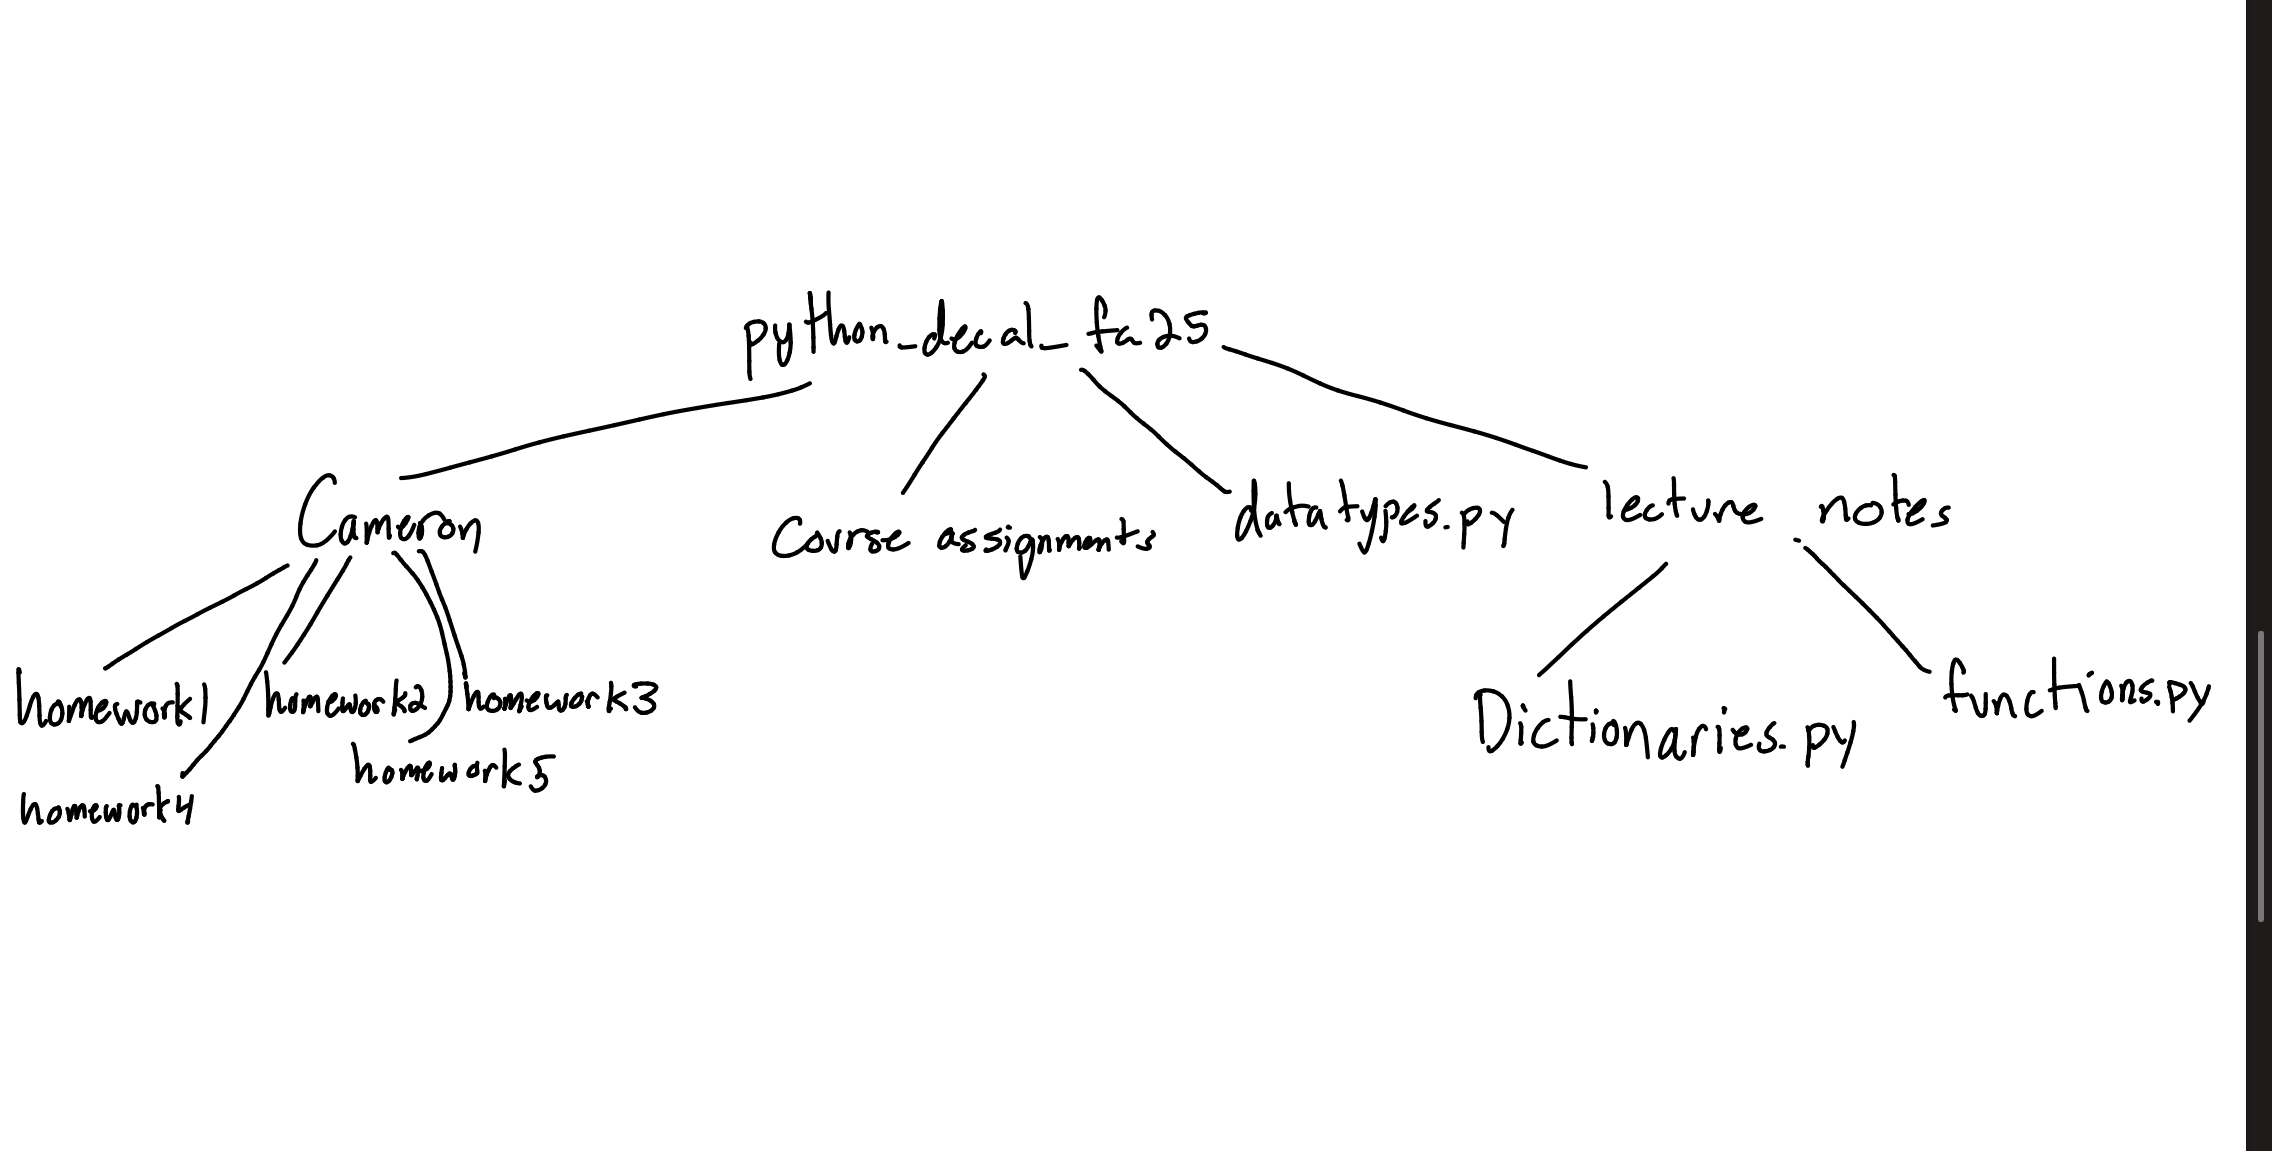 python_decal_fa25
Cameron
Course assignments
datatypes.py
lecture notes
homework1
homework2
homework3
homework4
homework5
Dictionaries.py
functions.py